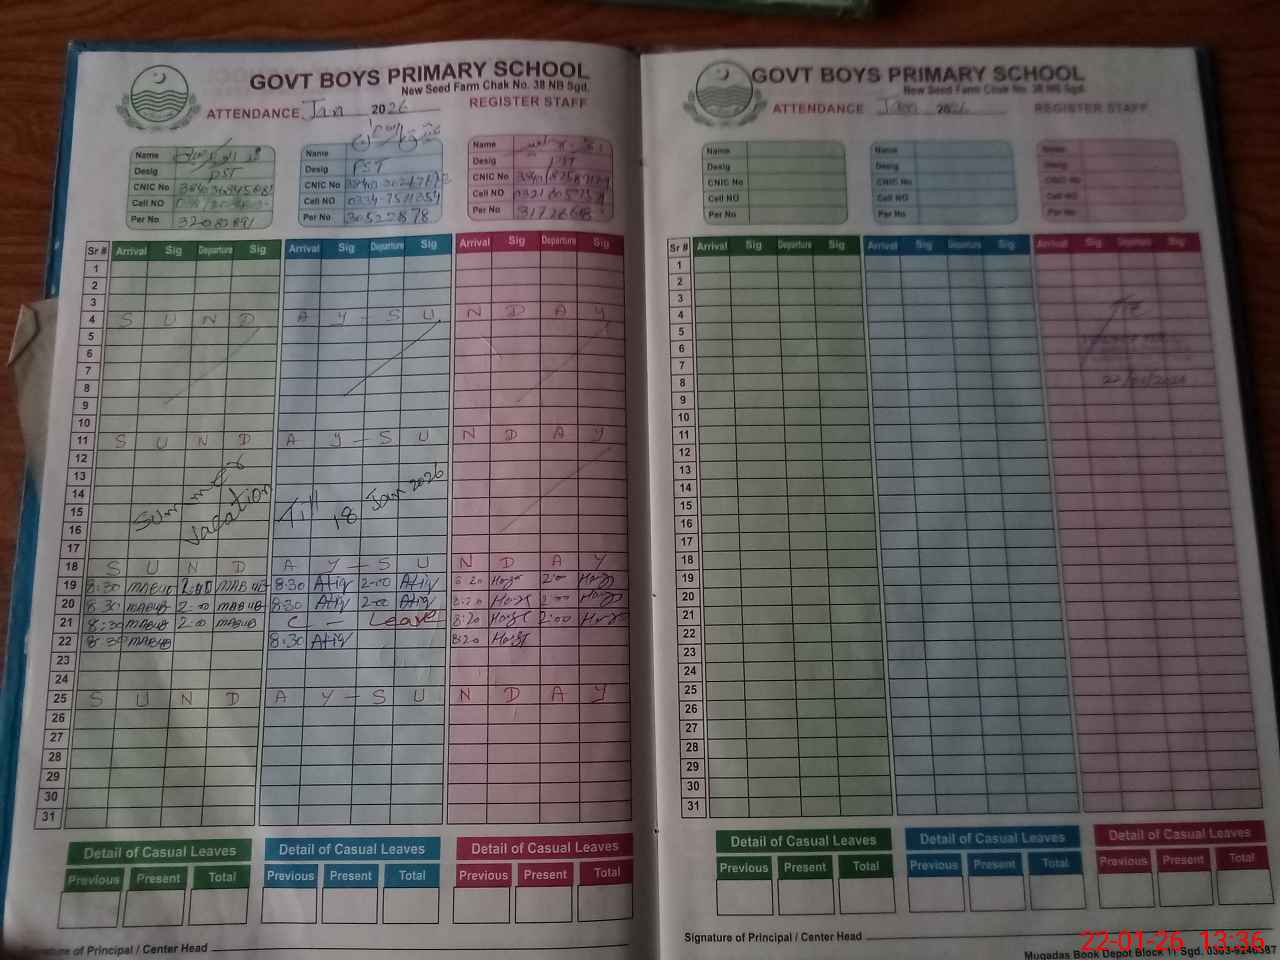 GOVT BOYS PRIMARY SCHOOL
New Seed Farm Chak No. 38 NB Sgd.
ATTENDANCE Jan 2026 REGISTER STAFF
Name
Desig PST
CNIC No
Cell NO
Per No 32082891
Name
Desig PST
CNIC No
Cell NO 0334-7511354
Per No 30522878
Name
Desig PST
CNIC No
Cell NO
Per No
Sr # Arrival Sig Departure Sig Arrival Sig Departure Sig Arrival Sig Departure Sig
1
2
3
4 S U N D A Y - S U N D A Y
5
6
7
8
9
10
11 S U N D A Y - S U N D A Y
12
13 Summer
14 Vacation Till 18 Jan 2026
15
16
17
18 S U N D A Y - S U N D A Y
19 8:30 MABUB 2:00 MABUB 8:30 Atiq 2:00 Atiq 8:20 2:00
20 8:30 MABUB 2:00 MABUB 8:30 Atiq 2:00 Atiq 8:20 2:00
21 8:30 MABUB 2:00 MABUB C - Leave 8:20 2:00
22 8:30 MABUB 8:30 Atiq 8:20
23
24
25 S U N D A Y - S U N D A Y
26
27
28
29
30
31
Detail of Casual Leaves Detail of Casual Leaves Detail of Casual Leaves
Previous Present Total Previous Present Total Previous Present Total
Signature of Principal / Center Head
GOVT BOYS PRIMARY SCHOOL
New Seed Farm Chak No. 38 NB Sgd.
ATTENDANCE Jan 2026 REGISTER STAFF
Name
Desig
CNIC No
Cell NO
Per No
Name
Desig
CNIC No
Cell NO
Per No
Name
Desig
CNIC No
Cell NO
Per No
Sr # Arrival Sig Departure Sig Arrival Sig Departure Sig Arrival Sig Departure Sig
1
2
3
4
5
6
7
8 22/01/2026
9
10
11
12
13
14
15
16
17
18
19
20
21
22
23
24
25
26
27
28
29
30
31
Detail of Casual Leaves Detail of Casual Leaves Detail of Casual Leaves
Previous Present Total Previous Present Total Previous Present Total
Signature of Principal / Center Head
Muqadas Book Depot Block 11 Sgd.
22-01-26 13:36